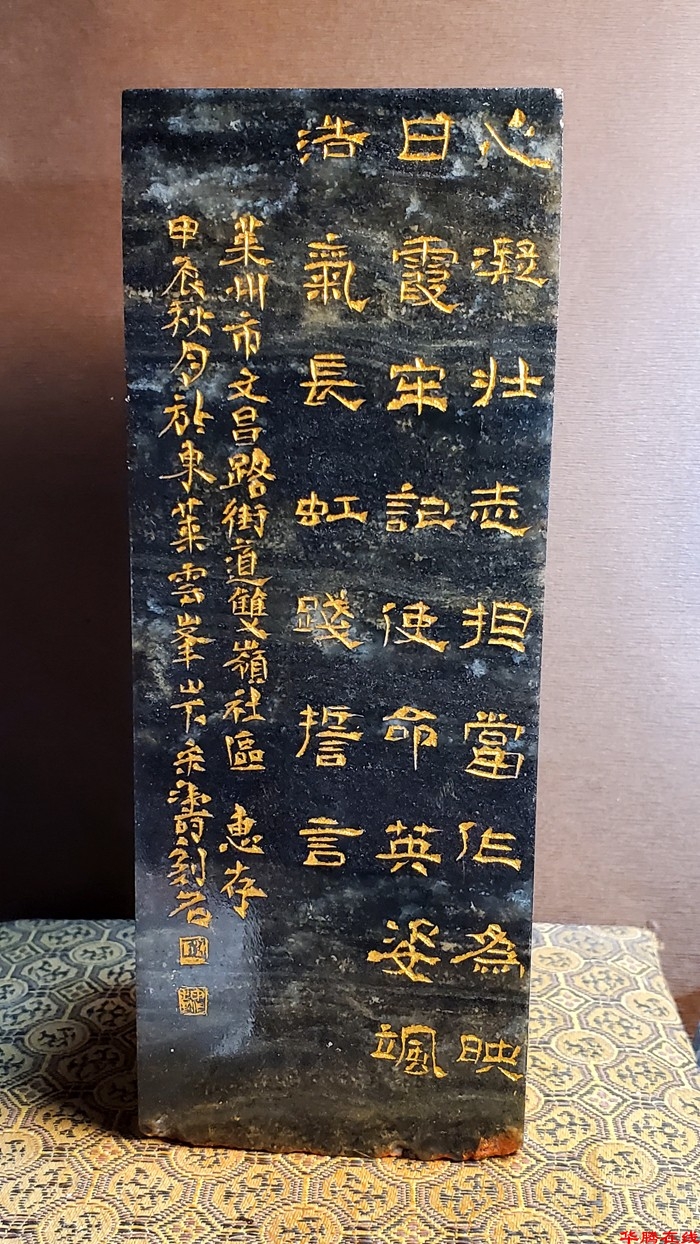 心凝壮志担當作為映
日霞牢記使命英姿颯
浩氣長虹踐誓言
莱州市文昌路街道雙嶺社區 惠存
甲辰秋月於東莱雲峯山下 濤刻石
华腾在线